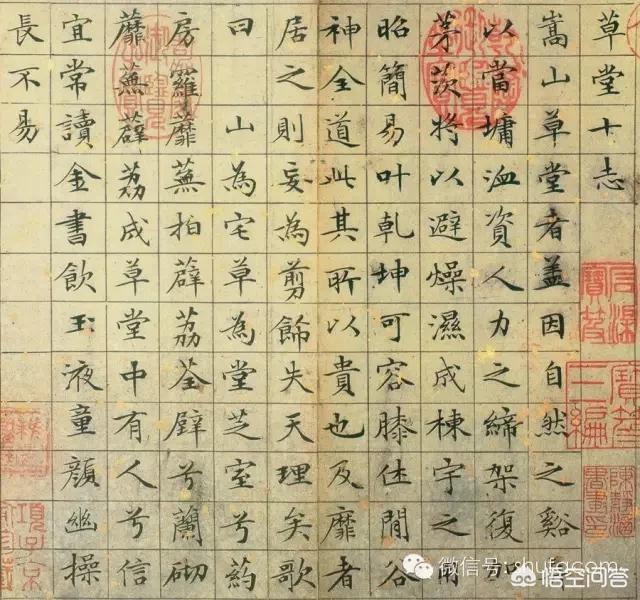 草堂十志
嵩山草堂者盖因自然之谿
以當墉洫資人力之締架復
茅茨將以避燥濕成棟宇之用
昭簡易叶乾坤可容膝休閒谷
神全道此其所以貴也及靡者
居之則妄為剪飾失天理矣歌
曰 山為宅草為堂芝室兮葯
房羅蘼蕪拍薜荔荃壁兮蘭砌
蘼蕪薜荔成草堂中有人兮信
宜常讀金書飲玉液童顏幽操
長不易
微信号:
悟空问答